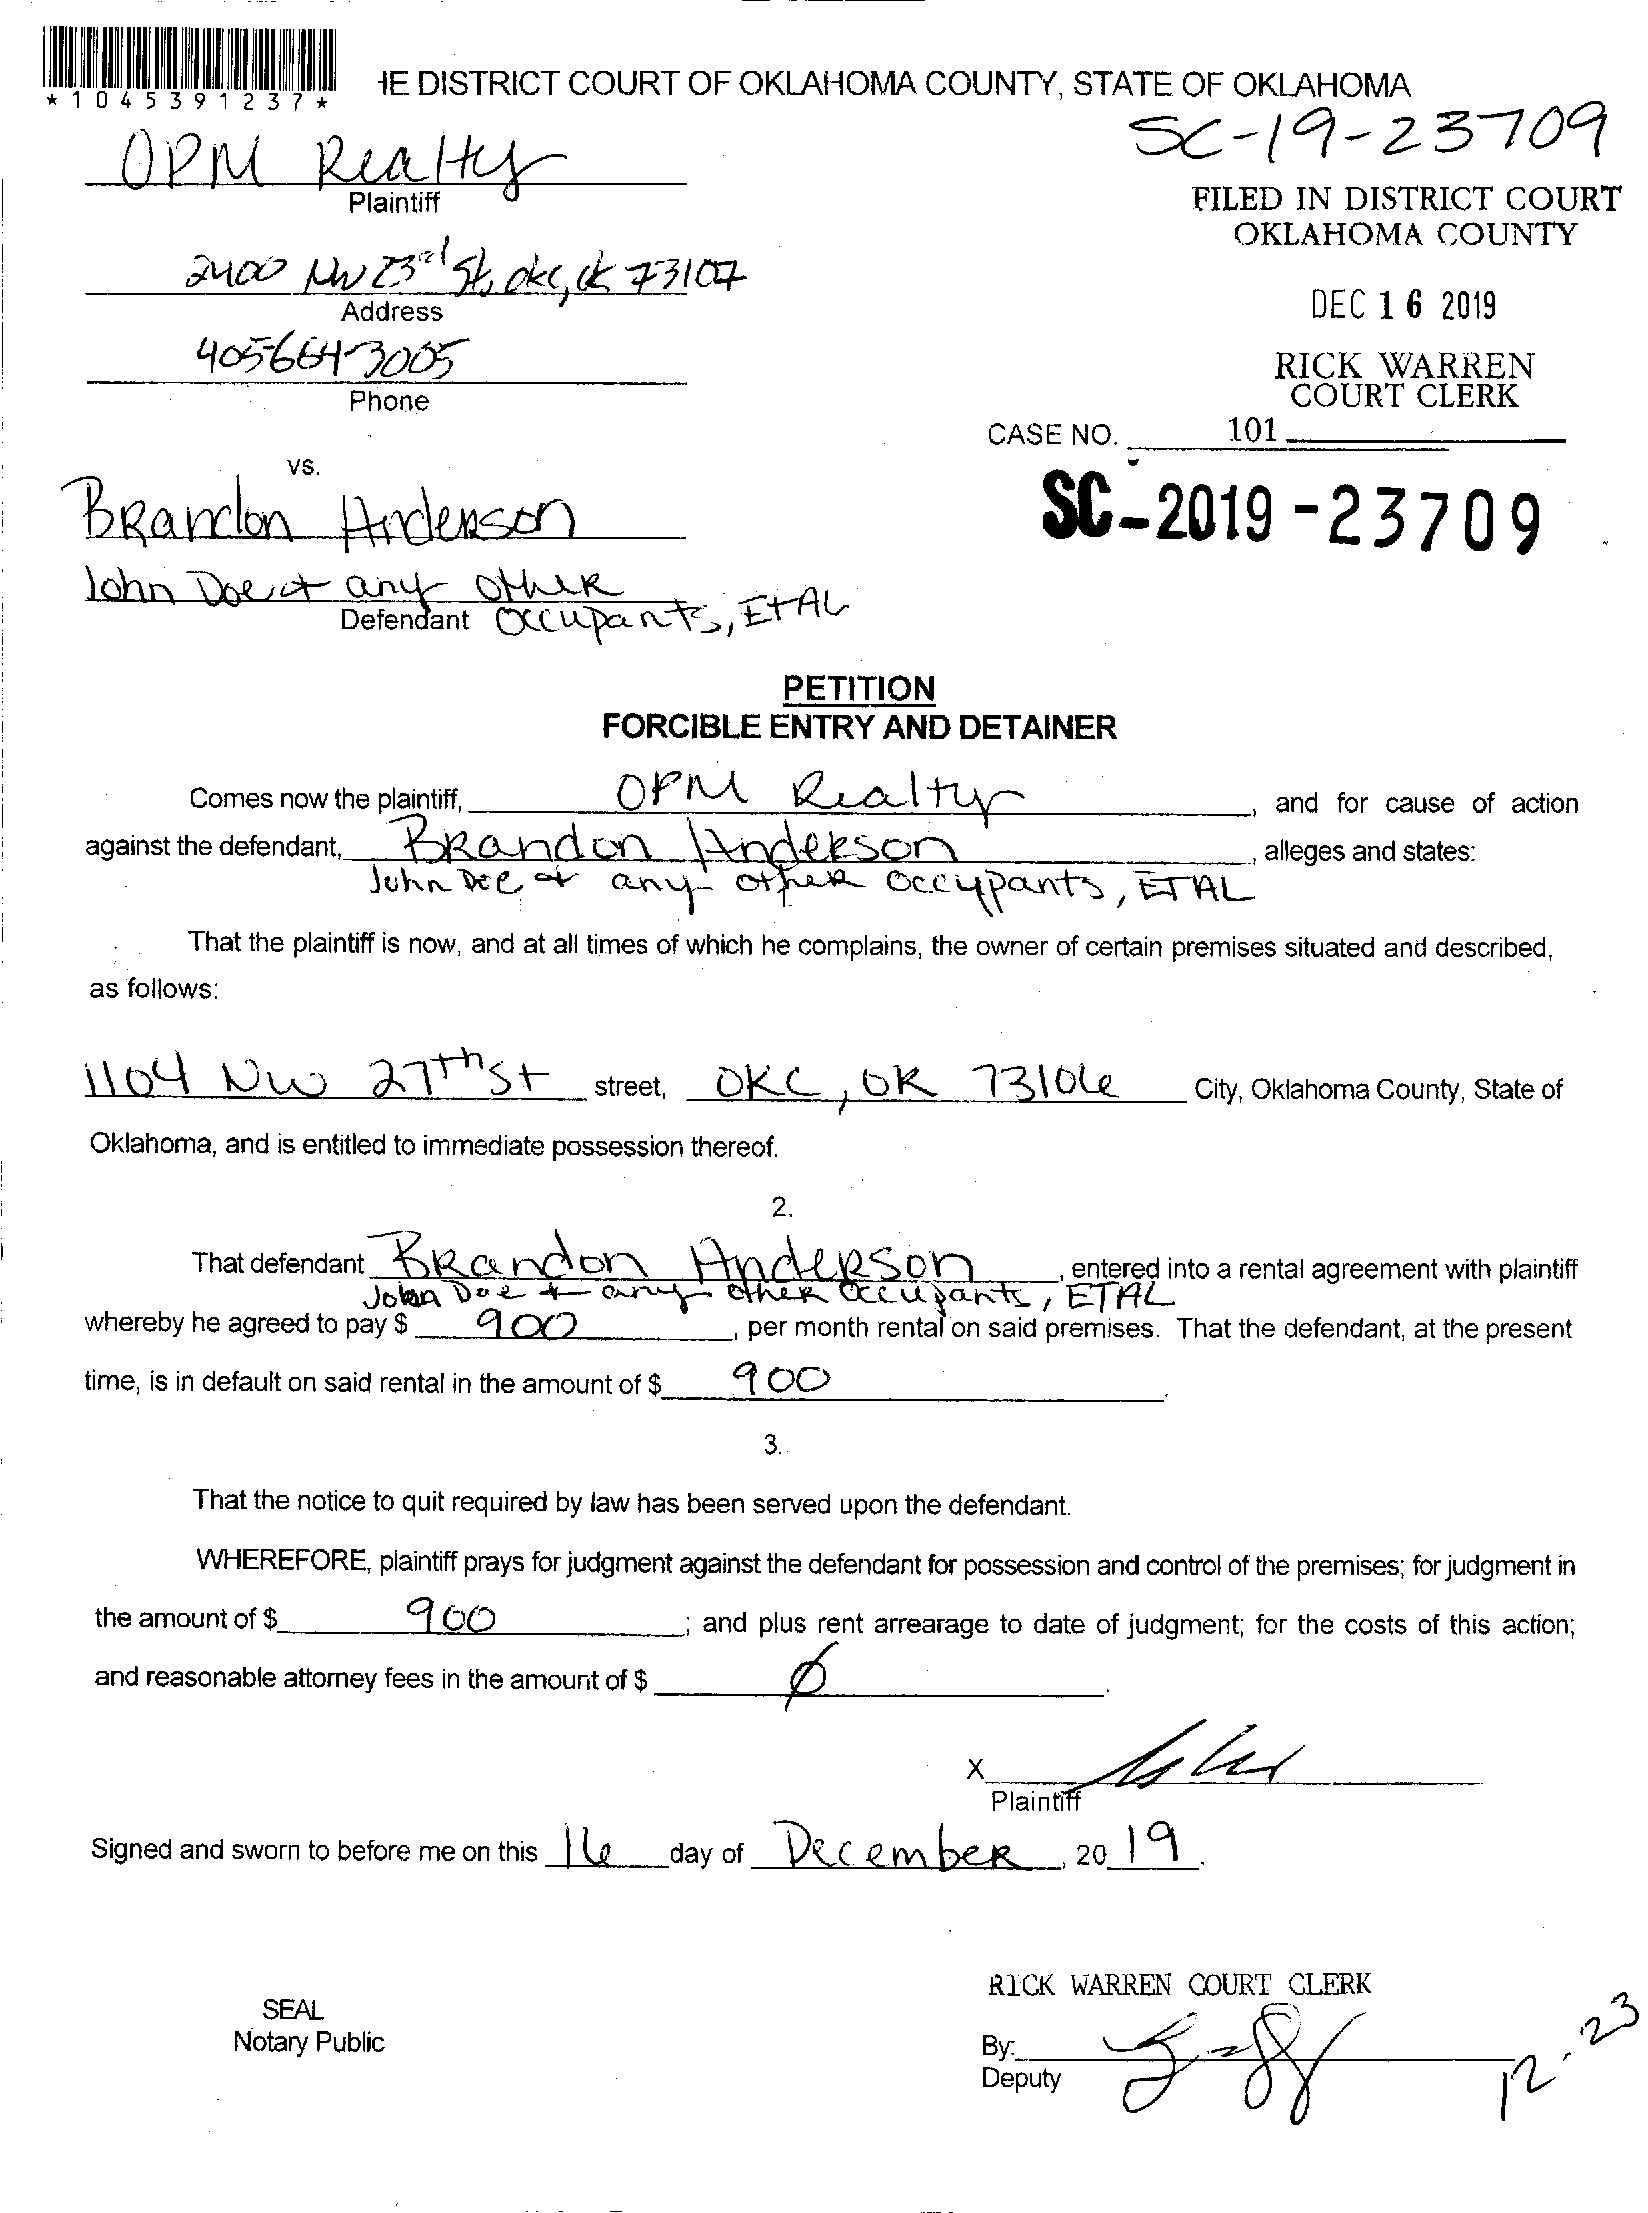 *1045391237*
HE DISTRICT COURT OF OKLAHOMA COUNTY, STATE OF OKLAHOMA
SC-19-23709
OPM Realty
Plaintiff
FILED IN DISTRICT COURT
OKLAHOMA COUNTY
2400 NW 23rd St, okc, ok 73107
Address
DEC 16 2019
Phone
RICK WARREN
COURT CLERK
CASE NO. 101
vs.
SC-2019-23709
Brandon Anderson
John Doe + any other
Defendant Occupants, EtAL
PETITION
FORCIBLE ENTRY AND DETAINER
Comes now the plaintiff, OPM Realty, and for cause of action
against the defendant, Brandon Anderson, alleges and states:
John Doe + any other occupants, ETAL
That the plaintiff is now, and at all times of which he complains, the owner of certain premises situated and described,
as follows:
1104 NW 27th St street, OKC, OK 73106 City, Oklahoma County, State of
Oklahoma, and is entitled to immediate possession thereof.
2.
That defendant Brandon Anderson, entered into a rental agreement with plaintiff
John Doe + any other occupants, ETAL
whereby he agreed to pay $ 900, per month rental on said premises. That the defendant, at the present
time, is in default on said rental in the amount of $ 900.
3.
That the notice to quit required by law has been served upon the defendant.
WHEREFORE, plaintiff prays for judgment against the defendant for possession and control of the premises; for judgment in
the amount of $ 900; and plus rent arrearage to date of judgment; for the costs of this action;
and reasonable attorney fees in the amount of $ Ø.
X
Plaintiff
Signed and sworn to before me on this 16 day of December, 2019.
RICK WARREN COURT CLERK
SEAL
Notary Public
By:
Deputy
12-23